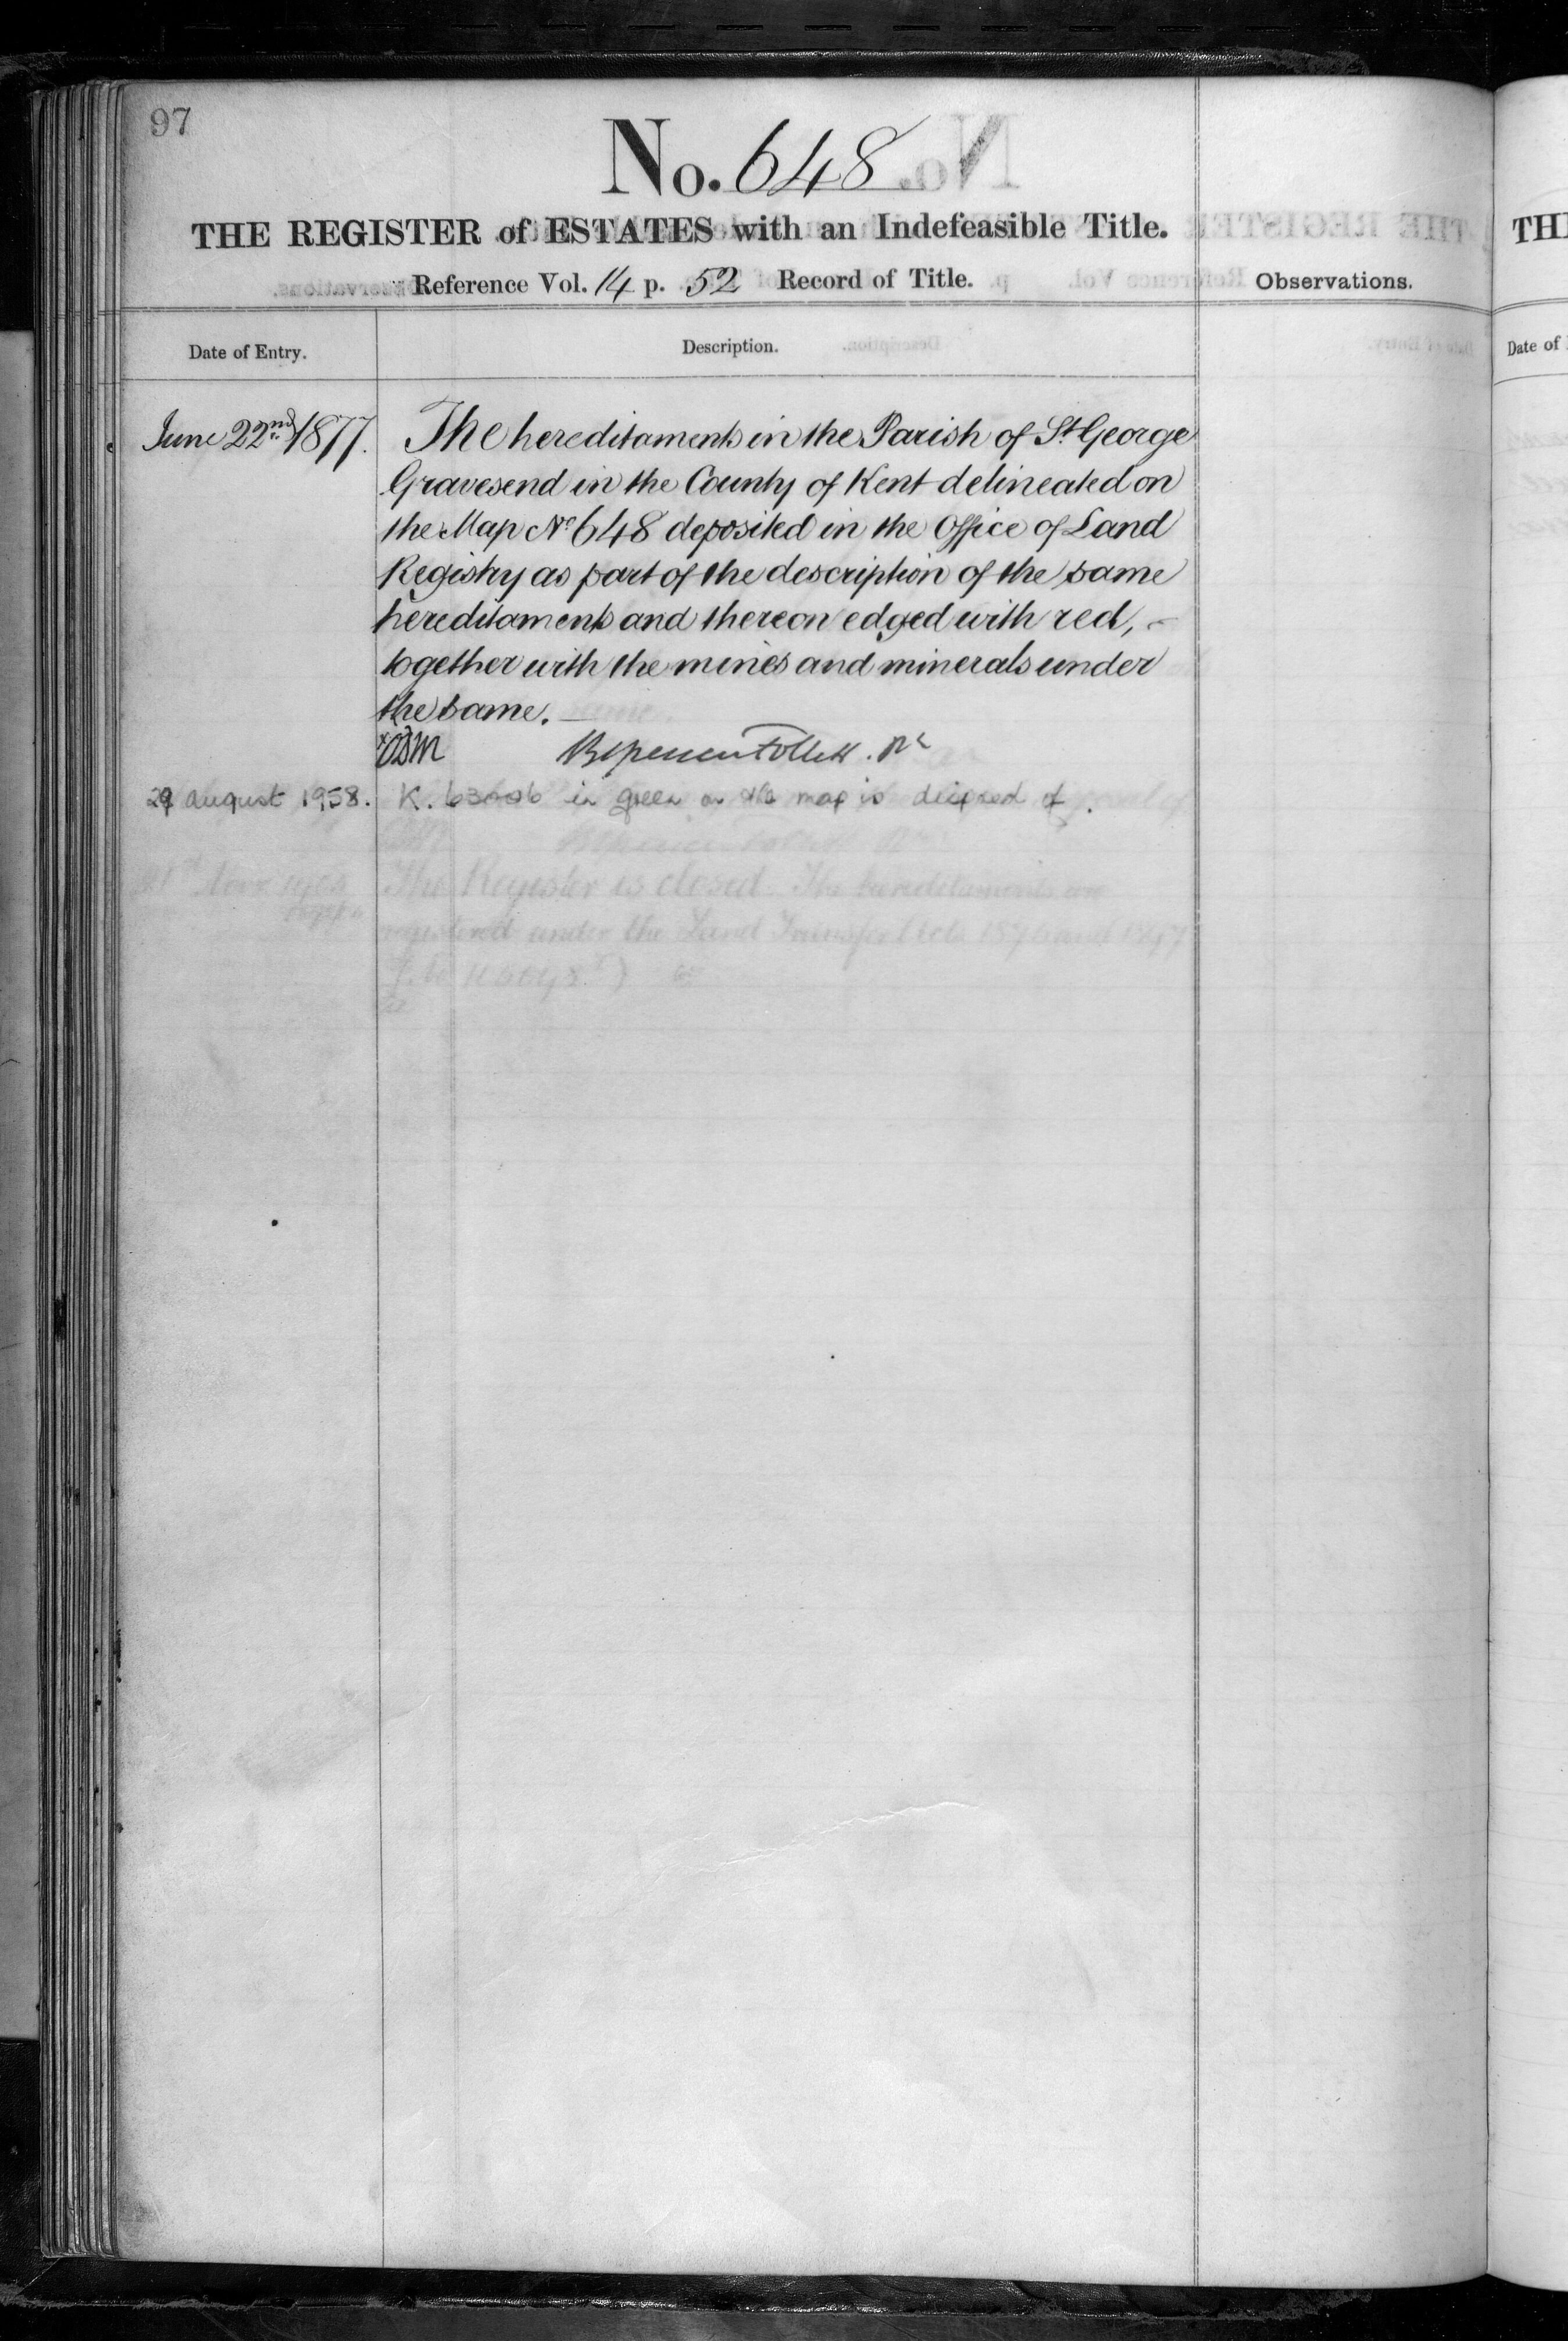 97
No. 648
THE REGISTER of ESTATES with an Indefeasible Title.
Reference Vol. 14 p. 52 Record of Title.
Observations.
Date of Entry.
Description.
June 22nd 1877.
The hereditaments in the Parish of St George
Gravesend in the County of Kent delineated on
the Map No 648 deposited in the Office of Land
Registry as part of the description of the same
hereditaments and thereon edged with red,
together with the mines and minerals under
the same.
29 August 1958.
K. in green on the map is disposed of.
The Register is closed. The hereditaments are
registered under the Land Transfer Acts 1875 and 1897
TH
Date of